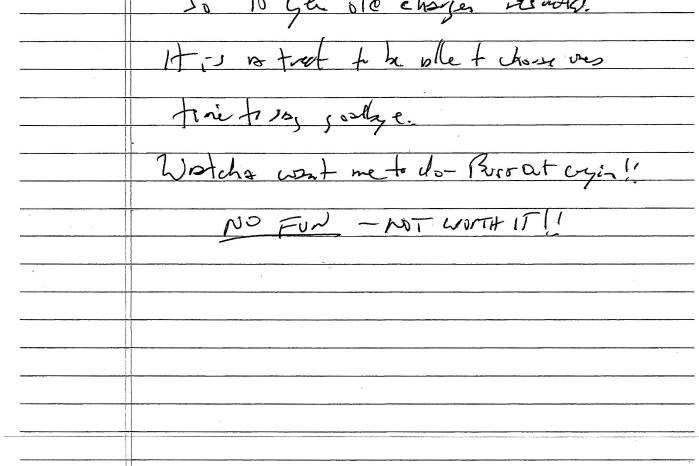 So 10 year old charges
It is a treat to be able to choose ones
time to say goodbye.
Watcha want me to do - Burst Out cryin!!
NO FUN - NOT WORTH IT!!